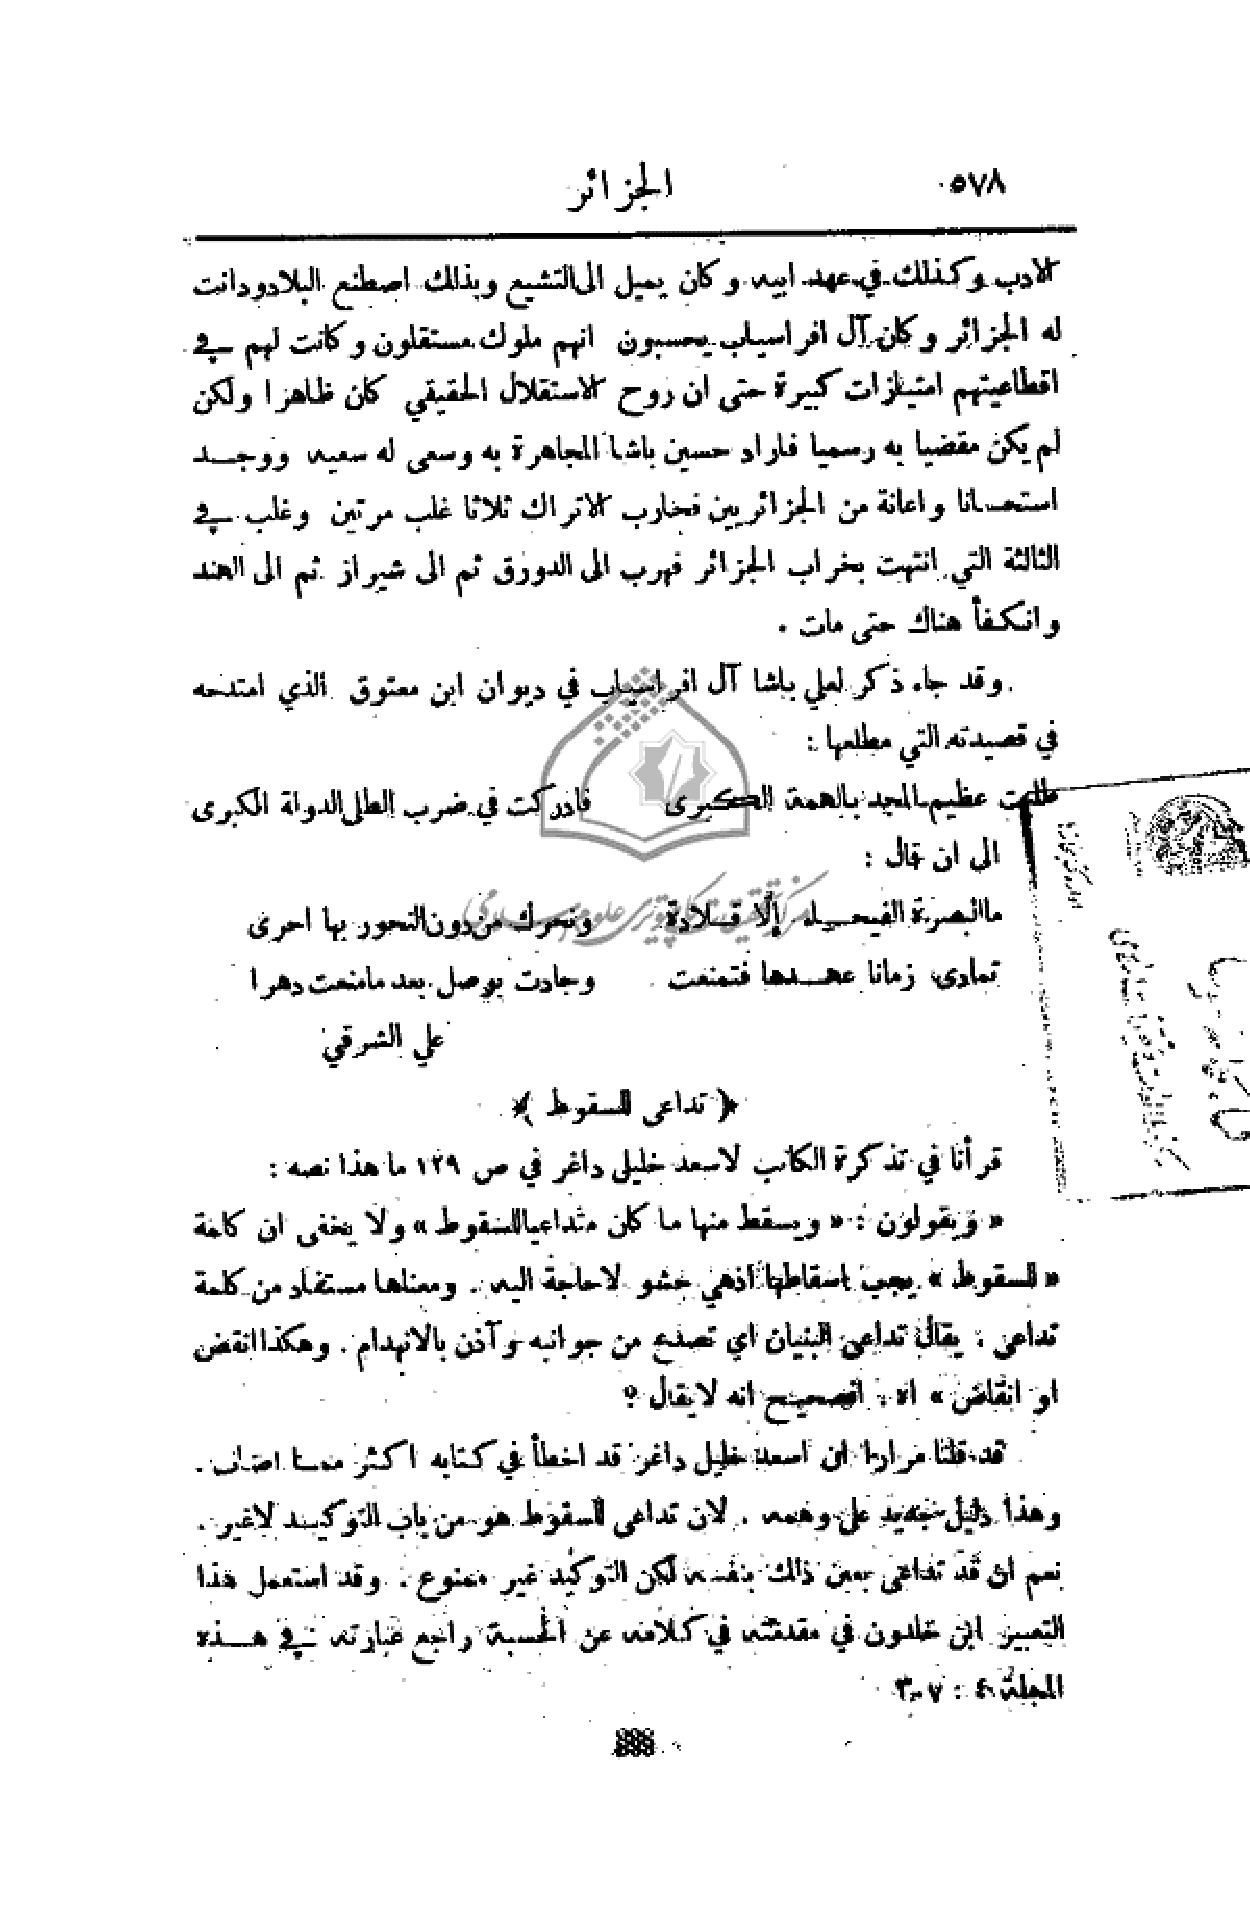 ٥٧٨ الجزائر
الادب وكذلك في عهد ابيه وكان يميل الى التشيع وبذلك اصطنع البلاد ودانت
له الجزائر وكان آل افراسياب يحسبون انهم ملوك مستقلون وكانت لهم في
اقطاعيتهم امتيازات كبيرة حتى ان روح الاستقلال الحقيقي كان ظاهرا ولكن
لم يكن مقضيا به رسميا فاراد حسين باشا المجاهرة به وسعى له سعيه ووجد
استحسانا واعانة من الجزائريين فحارب الاتراك ثلاثا غلب مرتين وغلب في
الثالثة التي انتهت بخراب الجزائر فهرب الى الدورق ثم الى شيراز ثم الى الهند
وانكفأ هناك حتى مات .
وقد جاء ذكر لعلي باشا آل افراسياب في ديوان ابن معتوق الذي امتدحه
في قصيدته التي مطلعها :
طلبت عظيم المجد بالهمة الكبرى فادركت في ضرب الطلى الدولة الكبرى
الى ان قال :
ما البصرة الفيحاء إلا قلادة ونحرك من دون النحور بها احرى
تمادى زمانا عهدها فتمنعت وجادت بوصل بعد ما منعت دهرا
علي الشرقي
﴿ تداعى للسقوط ﴾
قرأنا في تذكرة الكاتب لاسعد خليل داغر في ص ١٢٩ ما هذا نصه :
« ويقولون : « ويسقط منها ما كان متداعيا للسقوط » ولا يخفى ان كلمة
« للسقوط » يجب اسقاطها اذ هي حشو لا حاجة اليه . ومعناها مستفاد من كلمة
تداعى . يقال تداعى البنيان اي تصدع من جوانبه وآذن بالانهدام . وهكذا انقض
او انقاض » اه . افصحيح انه لا يقال ؟
قد قلنا مرارا ان اسعد خليل داغر قد اخطأ في كتابه اكثر مما اصاب .
وهذا دليل جديد على وهمه . لان تداعى للسقوط هو من باب التوكيد لا غير .
نعم ان قد تداعى يعني ذلك بنفسه لكن التوكيد غير ممنوع . وقد استعمل هذا
التعبير ابن خلدون في مقدمته في كلامه عن الحسبة راجع عبارته في هذه
المجلة ٤ : ٣٠٧